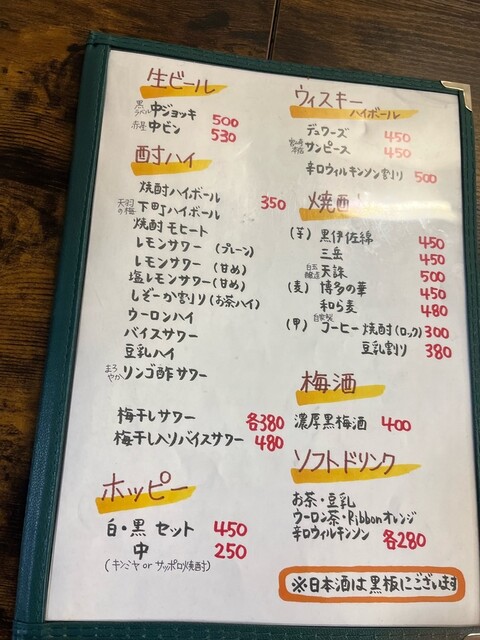 生ビール
黒ラベル 中ジョッキ 500
赤星 中ビン 530
酎ハイ
焼酎ハイボール 350
天羽の梅 下町ハイボール
焼酎モヒート
レモンサワー (プレーン)
レモンサワー (甘め)
塩レモンサワー (甘め)
しぞーか割り (お茶ハイ)
ウーロンハイ
バイスサワー
豆乳ハイ
まろやか リンゴ酢サワー
梅干しサワー 各380
梅干し入りバイスサワー 480
ホッピー
白・黒 セット 450
中 250
(キンミヤ or サッポロ焼酎)
ウィスキー
ハイボール
デュワーズ 450
宮崎本店 サンピース 450
辛口ウィルキンソン割り 500
焼酎
(芋) 黒伊佐錦 450
三岳 450
白玉醸造 天誅 500
(麦) 博多の華 450
和ら麦 480
(甲) 自家製 コーヒー焼酎 (ロック) 300
豆乳割り 380
梅酒
濃厚黒梅酒 400
ソフトドリンク
お茶・豆乳
ウーロン茶・Ribbonオレンジ
辛口ウィルキンソン 各280
※日本酒は黒板にございます